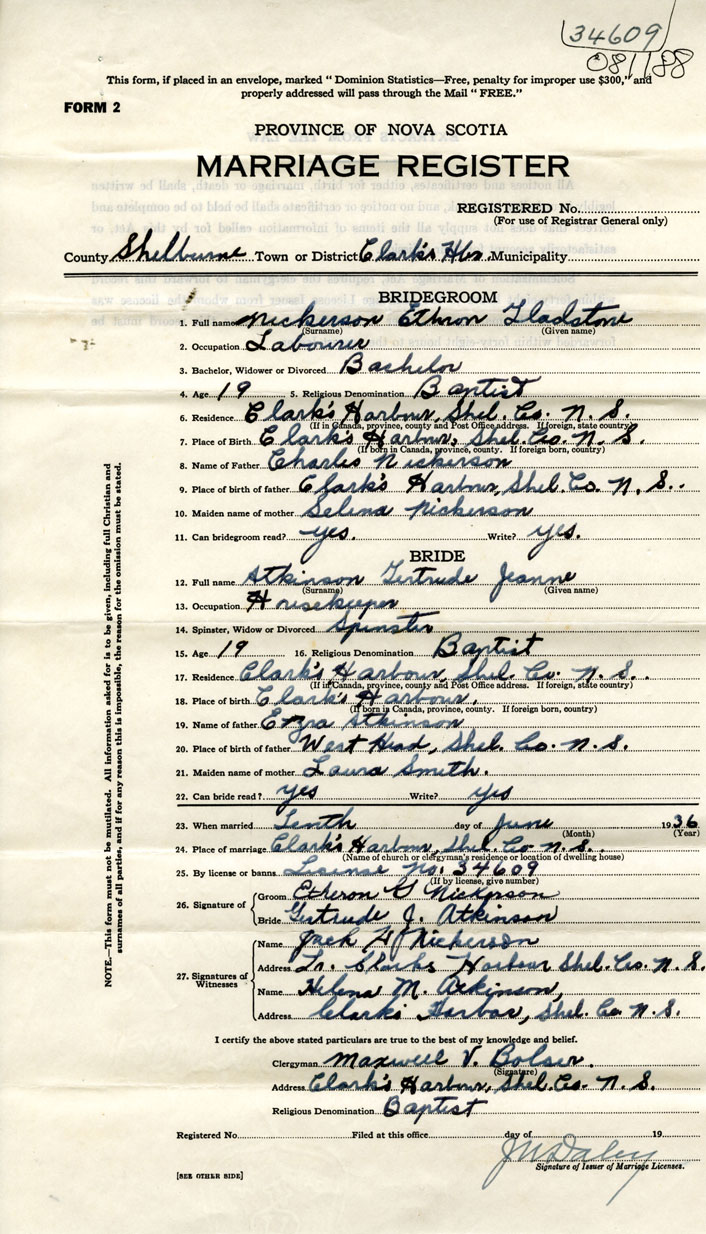 34609
081188
This form, if placed in an envelope, marked " Dominion Statistics—Free, penalty for improper use $300," and
properly addressed will pass through the Mail " FREE."
FORM 2
PROVINCE OF NOVA SCOTIA
MARRIAGE REGISTER
REGISTERED No.
(For use of Registrar General only)
County Shelburne Town or District Clark's Hbr. Municipality
BRIDEGROOM
1. Full name Nickerson Ethron Gladstone
(Surname) (Given name)
2. Occupation Labourer
3. Bachelor, Widower or Divorced Bachelor
4. Age 19 5. Religious Denomination Baptist
6. Residence Clark's Harbour, Shel. Co. N. S.
(If in Canada, province, county and Post Office address. If foreign, state country)
7. Place of Birth Clark's Harbour, Shel. Co. N. S.
(If born in Canada, province, county. If foreign born, country)
8. Name of Father Charles Nickerson
9. Place of birth of father Clark's Harbour, Shel. Co. N. S.
10. Maiden name of mother Selina Nickerson
11. Can bridegroom read? yes. Write? yes.
BRIDE
12. Full name Atkinson Gertrude Jeanne
(Surname) (Given name)
13. Occupation Housekeeper
14. Spinster, Widow or Divorced Spinster
15. Age 19 16. Religious Denomination Baptist
17. Residence Clark's Harbour, Shel. Co. N. S.
(If in Canada, province, county and Post Office address. If foreign, state country)
18. Place of birth Clark's Harbour,
(If born in Canada, province, county. If foreign born, country)
19. Name of father Ezra Atkinson
20. Place of birth of father West Head, Shel. Co. N. S.
21. Maiden name of mother Laura Smith.
22. Can bride read? yes Write? yes
23. When married Tenth day of June 1936
(Month) (Year)
24. Place of marriage Clark's Harbour, Shel. Co. N. S.
(Name of church or clergyman's residence or location of dwelling house)
25. By license or banns License No. 34609
(If by license, give number)
26. Signature of Groom Etheron G Nickerson
Bride Gertrude J. Atkinson
27. Signatures of Witnesses
Name Jack A Nickerson
Address Lr. Clarks Harbour Shel. Co. N. S.
Name Helena M. Atkinson,
Address Clark's Harbor, Shel. Co. N.S.
I certify the above stated particulars are true to the best of my knowledge and belief.
Clergyman Maxwell V. Bolser.
(Signature)
Address Clark's Harbour, Shel. Co. N. S.
Religious Denomination Baptist
Registered No. Filed at this office day of 19
J W Daley
Signature of Issuer of Marriage Licenses.
[SEE OTHER SIDE]
NOTE.—This form must not be mutilated. All information asked for is to be given, including full Christian and
surnames of all parties, and if for any reason this is impossible, the reason for the omission must be stated.